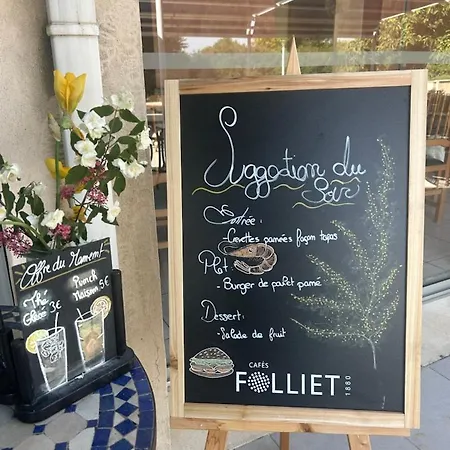 Offre du Moment
Thé
Glacé
3€
Punch
Maison
5€
Suggestion du
Soir
Entrée :
Crevettes panées façon tapas
Plat :
- Burger de poulet pané
Dessert :
- Salade de fruit
CAFÉS
FOLLIET
1880